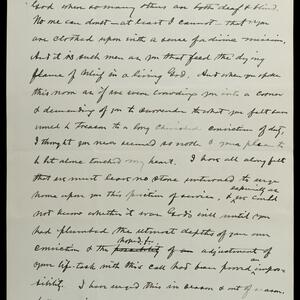 God when so many others are both deaf and blind.
No one can doubt — at least I cannot — that you
are clothed upon with a sense of a divine mission.
And it is such men as you that feed the dying
flame of belief in a living God. And when you spoke
this noon as if we were crowding you into a corner
& demanding of you to surrender to what you felt
would be treason to a long cherished conviction of duty,
I thought you never seemed so noble &
but alone touched my heart. I have all along felt
that we must leave no stone unturned to urge
home upon you this question of service, & especially as we could
not know whether it were God's will until you
had plumbed the utmost depths of your own
conviction & the hoped for possibility of an adjustment of
your life-task with this call had been proved impos-
sibility. I have urged this in season & out of season.